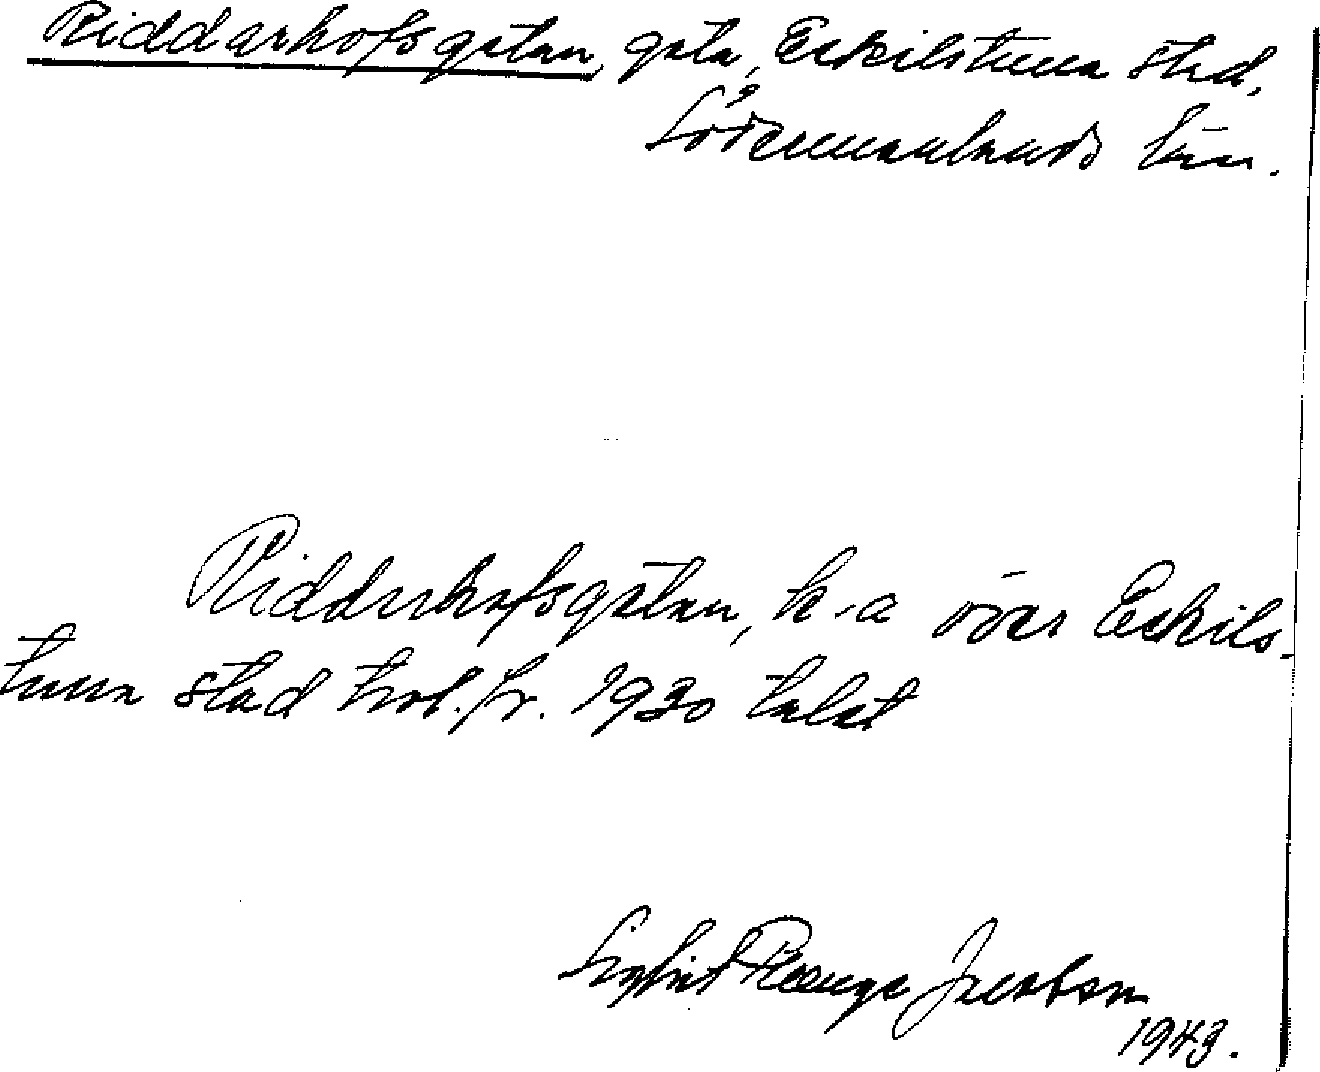 Riddarhofsgatan, gata, Eskilstuna stad,
Södermanlands län.
Riddarhofsgatan, k-a över Eskils-
tuna stad trol. fr. 1930 talet
Sigfrid Jacobson
1943.